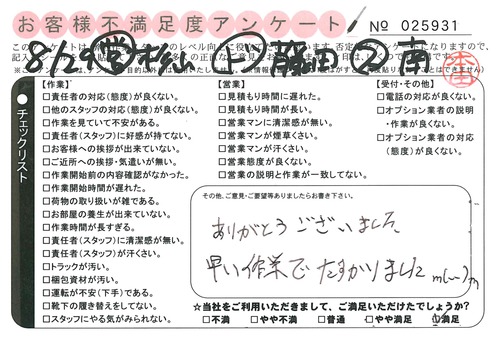 お客様不満足度アンケート
No 025931
8/29
藤田 ② 南
チェックリスト
【作業】
□責任者の対応(態度)が良くない。
□他のスタッフの対応(態度)が良くない。
□作業を見ていて不安がある。
□責任者(スタッフ)に好感が持てない。
□お客様への挨拶が出来ていない。
□ご近所への挨拶・気遣いが無い。
□作業開始前の内容確認がなかった。
□作業開始時間が遅れた。
□荷物の取り扱いが雑である。
□お部屋の養生が出来ていない。
□作業時間が長すぎる。
□責任者(スタッフ)に清潔感が無い。
□責任者(スタッフ)が汗くさい。
□トラックが汚い。
□梱包資材が汚い。
□運転が不安(下手)である。
□靴下の履き替えをしてない。
□スタッフにやる気がみられない。
【営業】
□見積もり時間に遅れた。
□見積もり時間が長い。
□営業マンに清潔感が無い。
□営業マンが煙草くさい。
□営業マンが汗くさい。
□営業態度が良くない。
□営業の説明と作業が一致してない。
【受付・その他】
□電話の対応が良くない。
□オプション業者の説明
・作業が良くない。
□オプション業者の対応
(態度)が良くない。
その他、ご意見・ご要望等ありましたらお書き下さい。
ありがとうございました。
早い作業でたすかりました m(__)m
☆当社をご利用いただきまして、ご満足いただけたでしょうか?
□不満 □やや不満 □普通 □やや満足 □満足